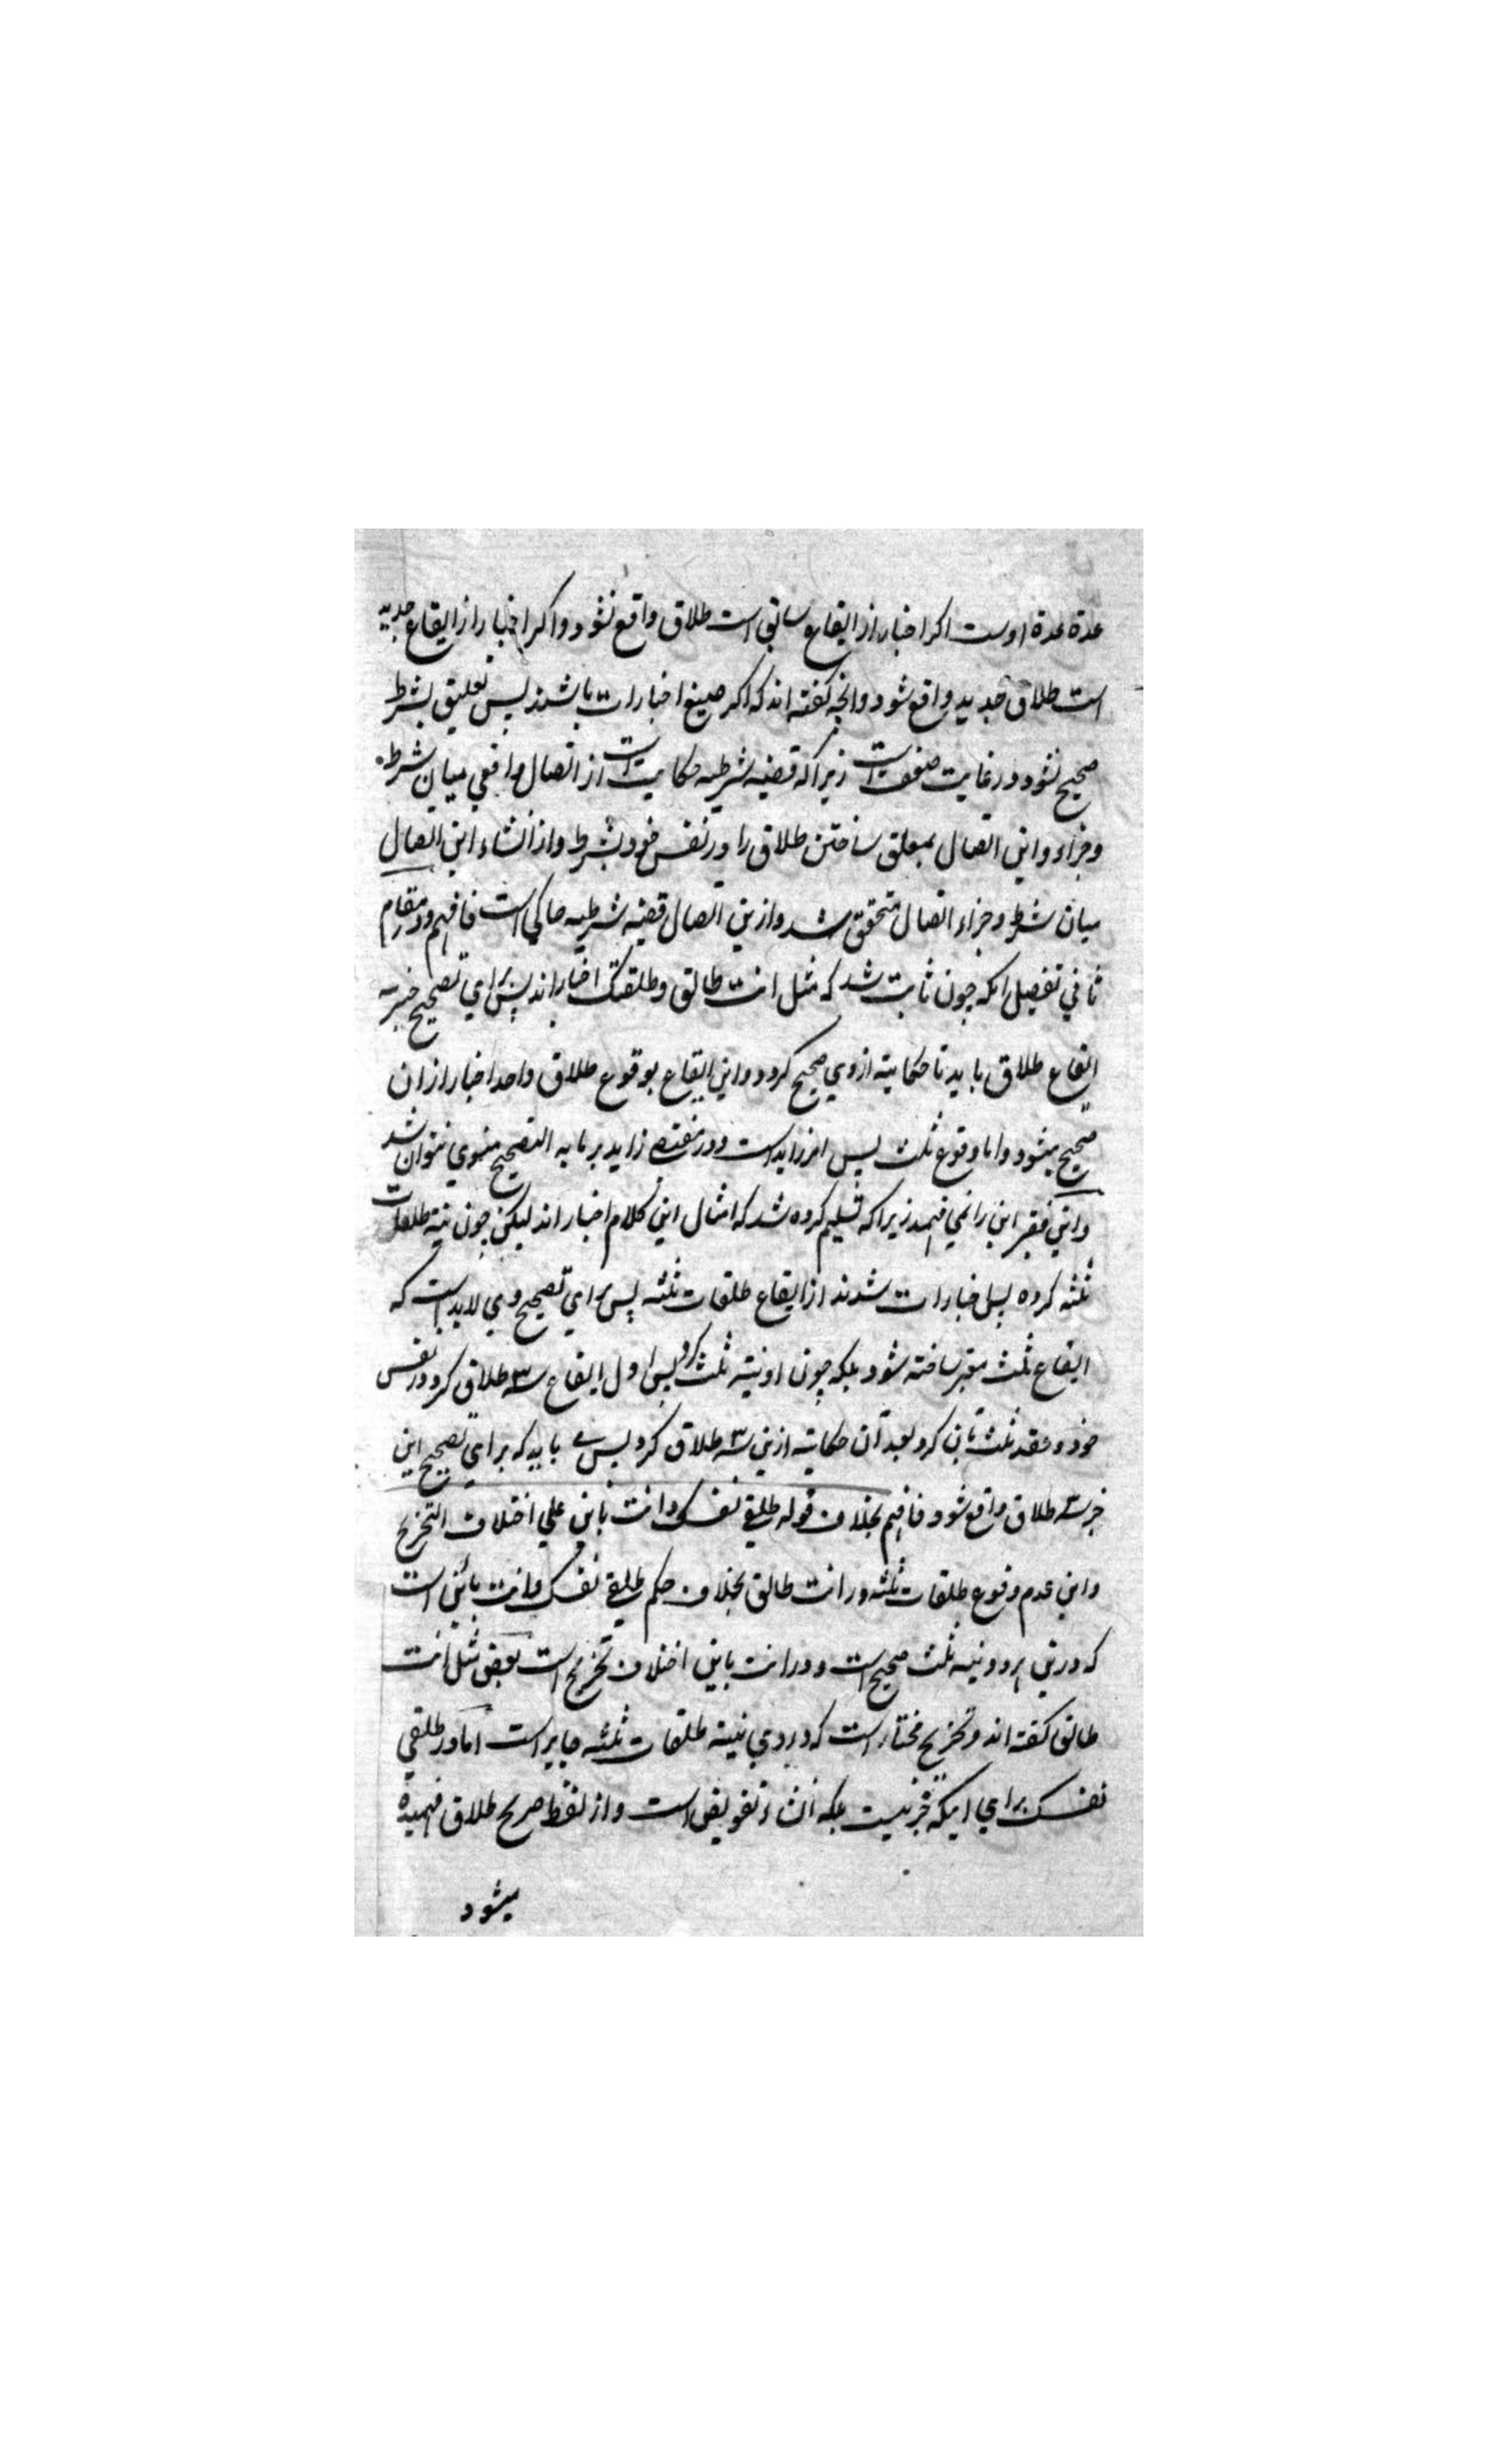 عدة عدة اوست اکر اخبار از ایقاع سابق است طلاق واقع نشود و اکر اخبار از ایقاع جدید
است طلاق جدید واقع شود وانچه کفته اند که اکر صیغ اخبارات باشند پس تعلیق بشرط
صحیح نشود در غایت ضعف است زیرا که قضیه شرطیه حکایت است از اتصال واقعی میان شرط
وجزاء و این اتصال بمعلق ساختن طلاق را در نفس خود بشرط و از انشاء این اتصال
میان شرط وجزاء اتصال متحقق شد و ازین اتصال قضیه شرطیه حاکی است فافهم و در مقام
ثانی تفصیل انکه چون ثابت شد که مثل انت طالق وطلقتک اخبار اند پس برای تصحیح خبریه
ایقاع طلاق باید تا حکایته ازوی صحیح کردد و این ایقاع بوقوع طلاق واحد اخبار ازان
صحیح میشود واما وقوع ثلث پس امر زاید است و در مقتضی زاید بر ما به التصحیح منوی نتوان شد
واین فقیر این را نمی فهمد زیرا که تسلیم کرده شد که امثال این کلام اخبار اند لیکن چون نیته طلقات
ثلثه کرده پس اخبارات شدند از ایقاع طلقات ثلثه پس برای تصحیح وی لابد است که
ایقاع ثلث معتبر ساخته شود بلکه چون او نیته ثلث کرد پس اول ایقاع سه طلاق کرد در نفس
خود و عقد ثلث بان کرد بعد آن حکایته ازین سه طلاق کرد پس باید که برای تصحیح این
خبر سه طلاق واقع شود فافهم بخلاف قوله طلقی نفسک وانت باین علی اختلاف التخریج
واین عدم وقوع طلقات ثلثه در انت طالق بخلاف حکم طلقی نفسک وانت بائن است
که درین هر دو نیته ثلث صحیح است و در انت باین اختلاف تخریج است بعض مثل انت
طالق کفته اند و تخریج مختار است که در وی نیته طلقات ثلثه جایز است اما در طلقی
نفسک برای اینکه خبر نیست بلکه انشاء تفویض است و از لفظ صریح طلاق فهمیده
میشود